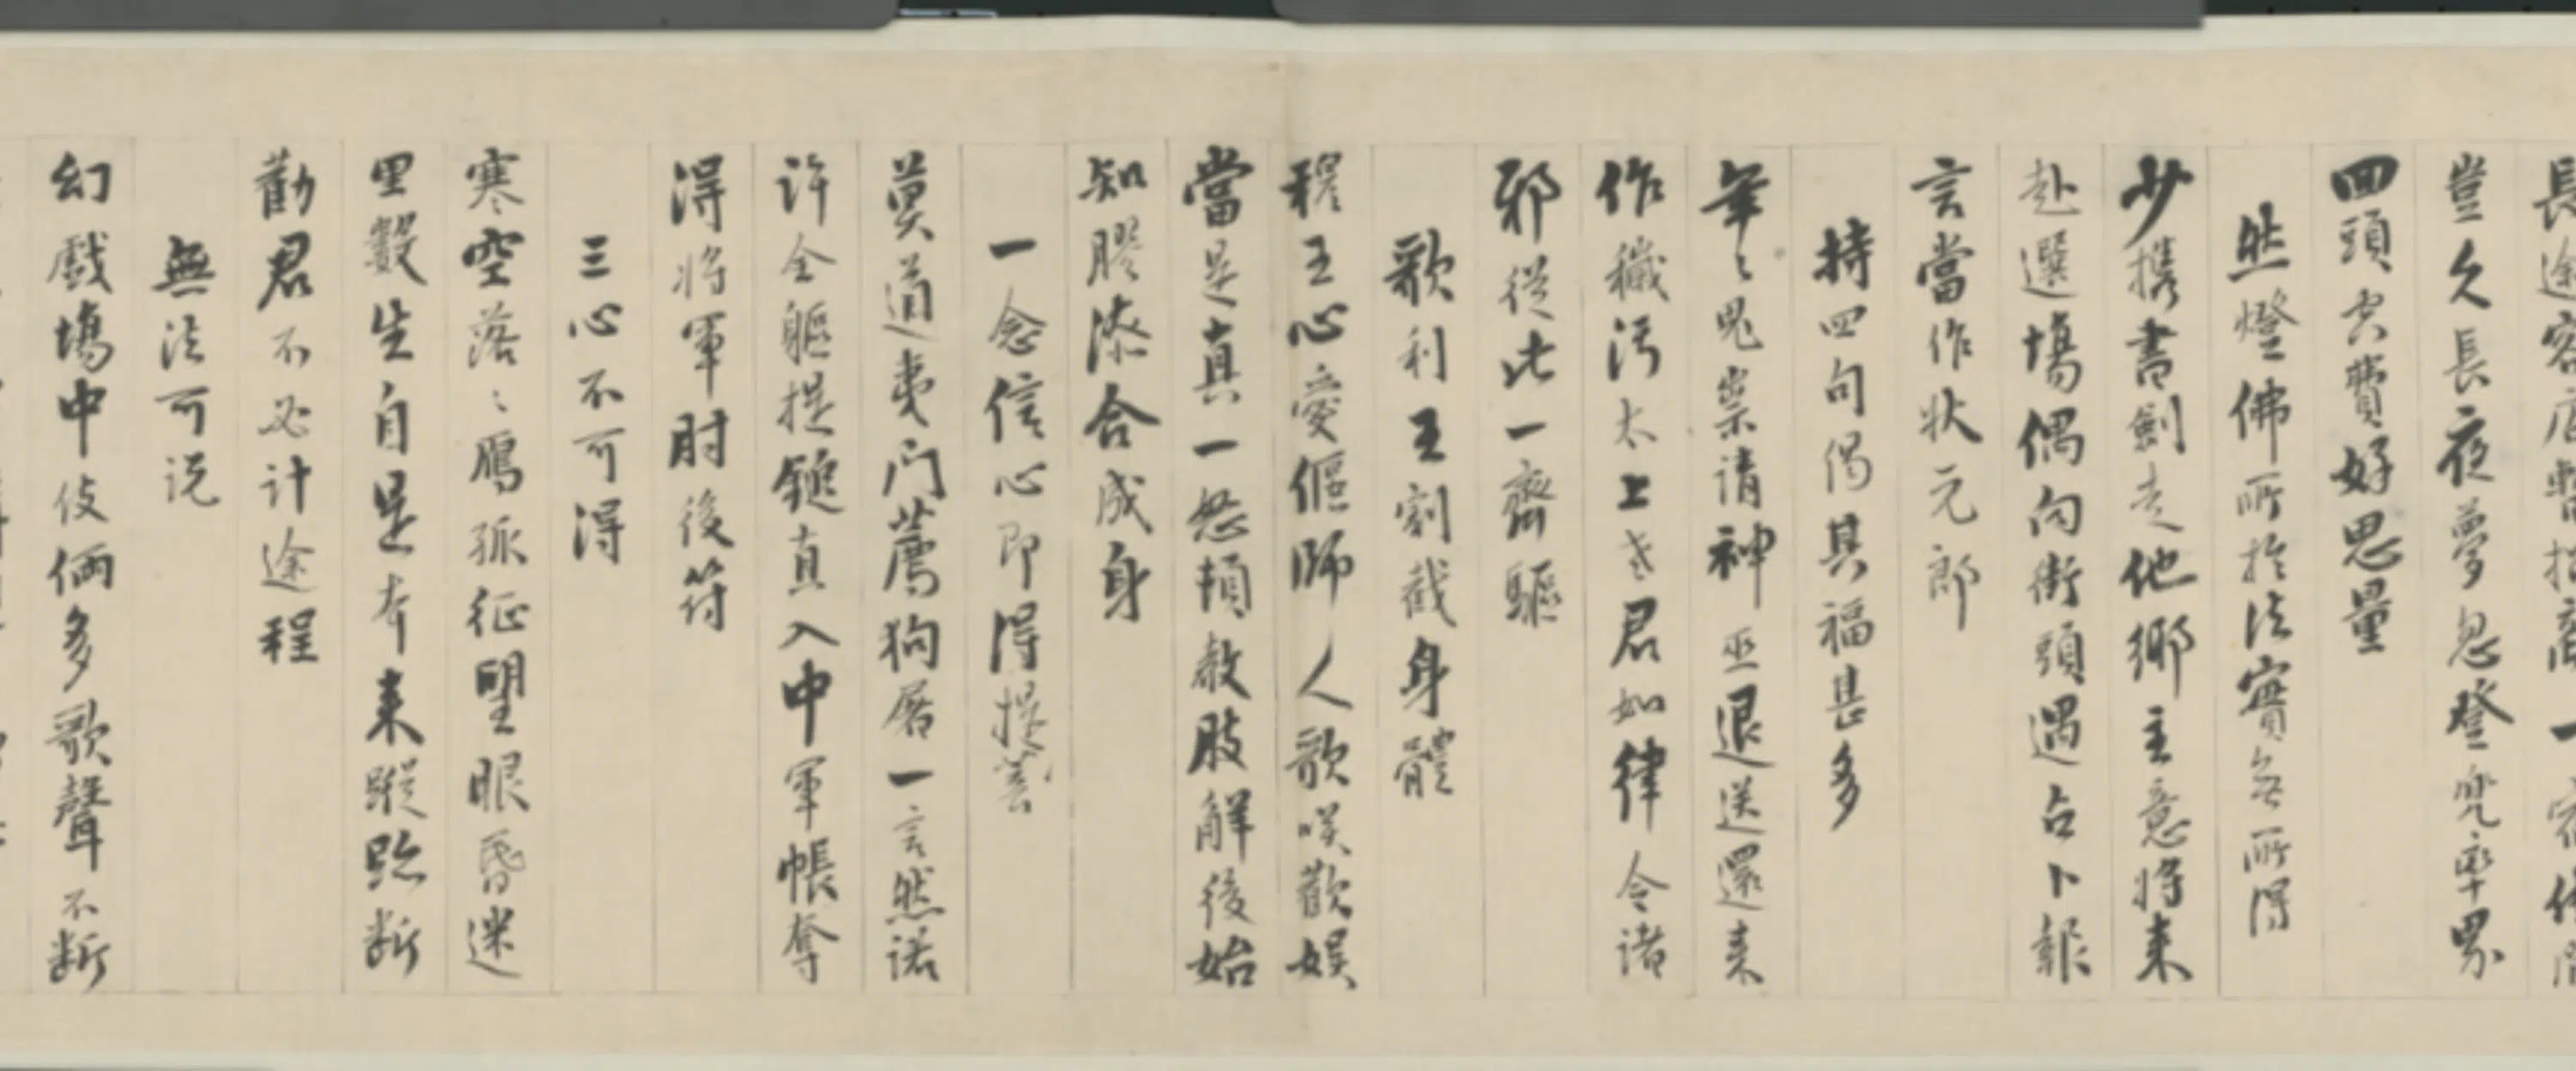 長途客店暫
豈久長夜夢忽登兜率界
四頭宏費好思量
然燈佛所於法實無所得
少攜書劍走他鄉主意將來
赴選場偶向街頭遇占卜報
言當作狀元郎
持四句偈其福甚多
年〻鬼祟請神巫退送還來
作穢污太上老君如律令諸
邪從此一齊驅
歌利王割截身體
穆王心愛偃師人歌咲歡娛
當是真一怒頓教肢解後始
知膠漆合成身
一念信心即得提菩
莫道夷門薦狗屠一言然諾
許全軀提鎚直入中軍帳奪
得將軍肘後符
三心不可得
寒空落〻鴈孤征望眼昏迷
里數生自是本來蹤跡斷
勸君不必計途程
無法可說
幻戲場中伎倆多歌聲不斷